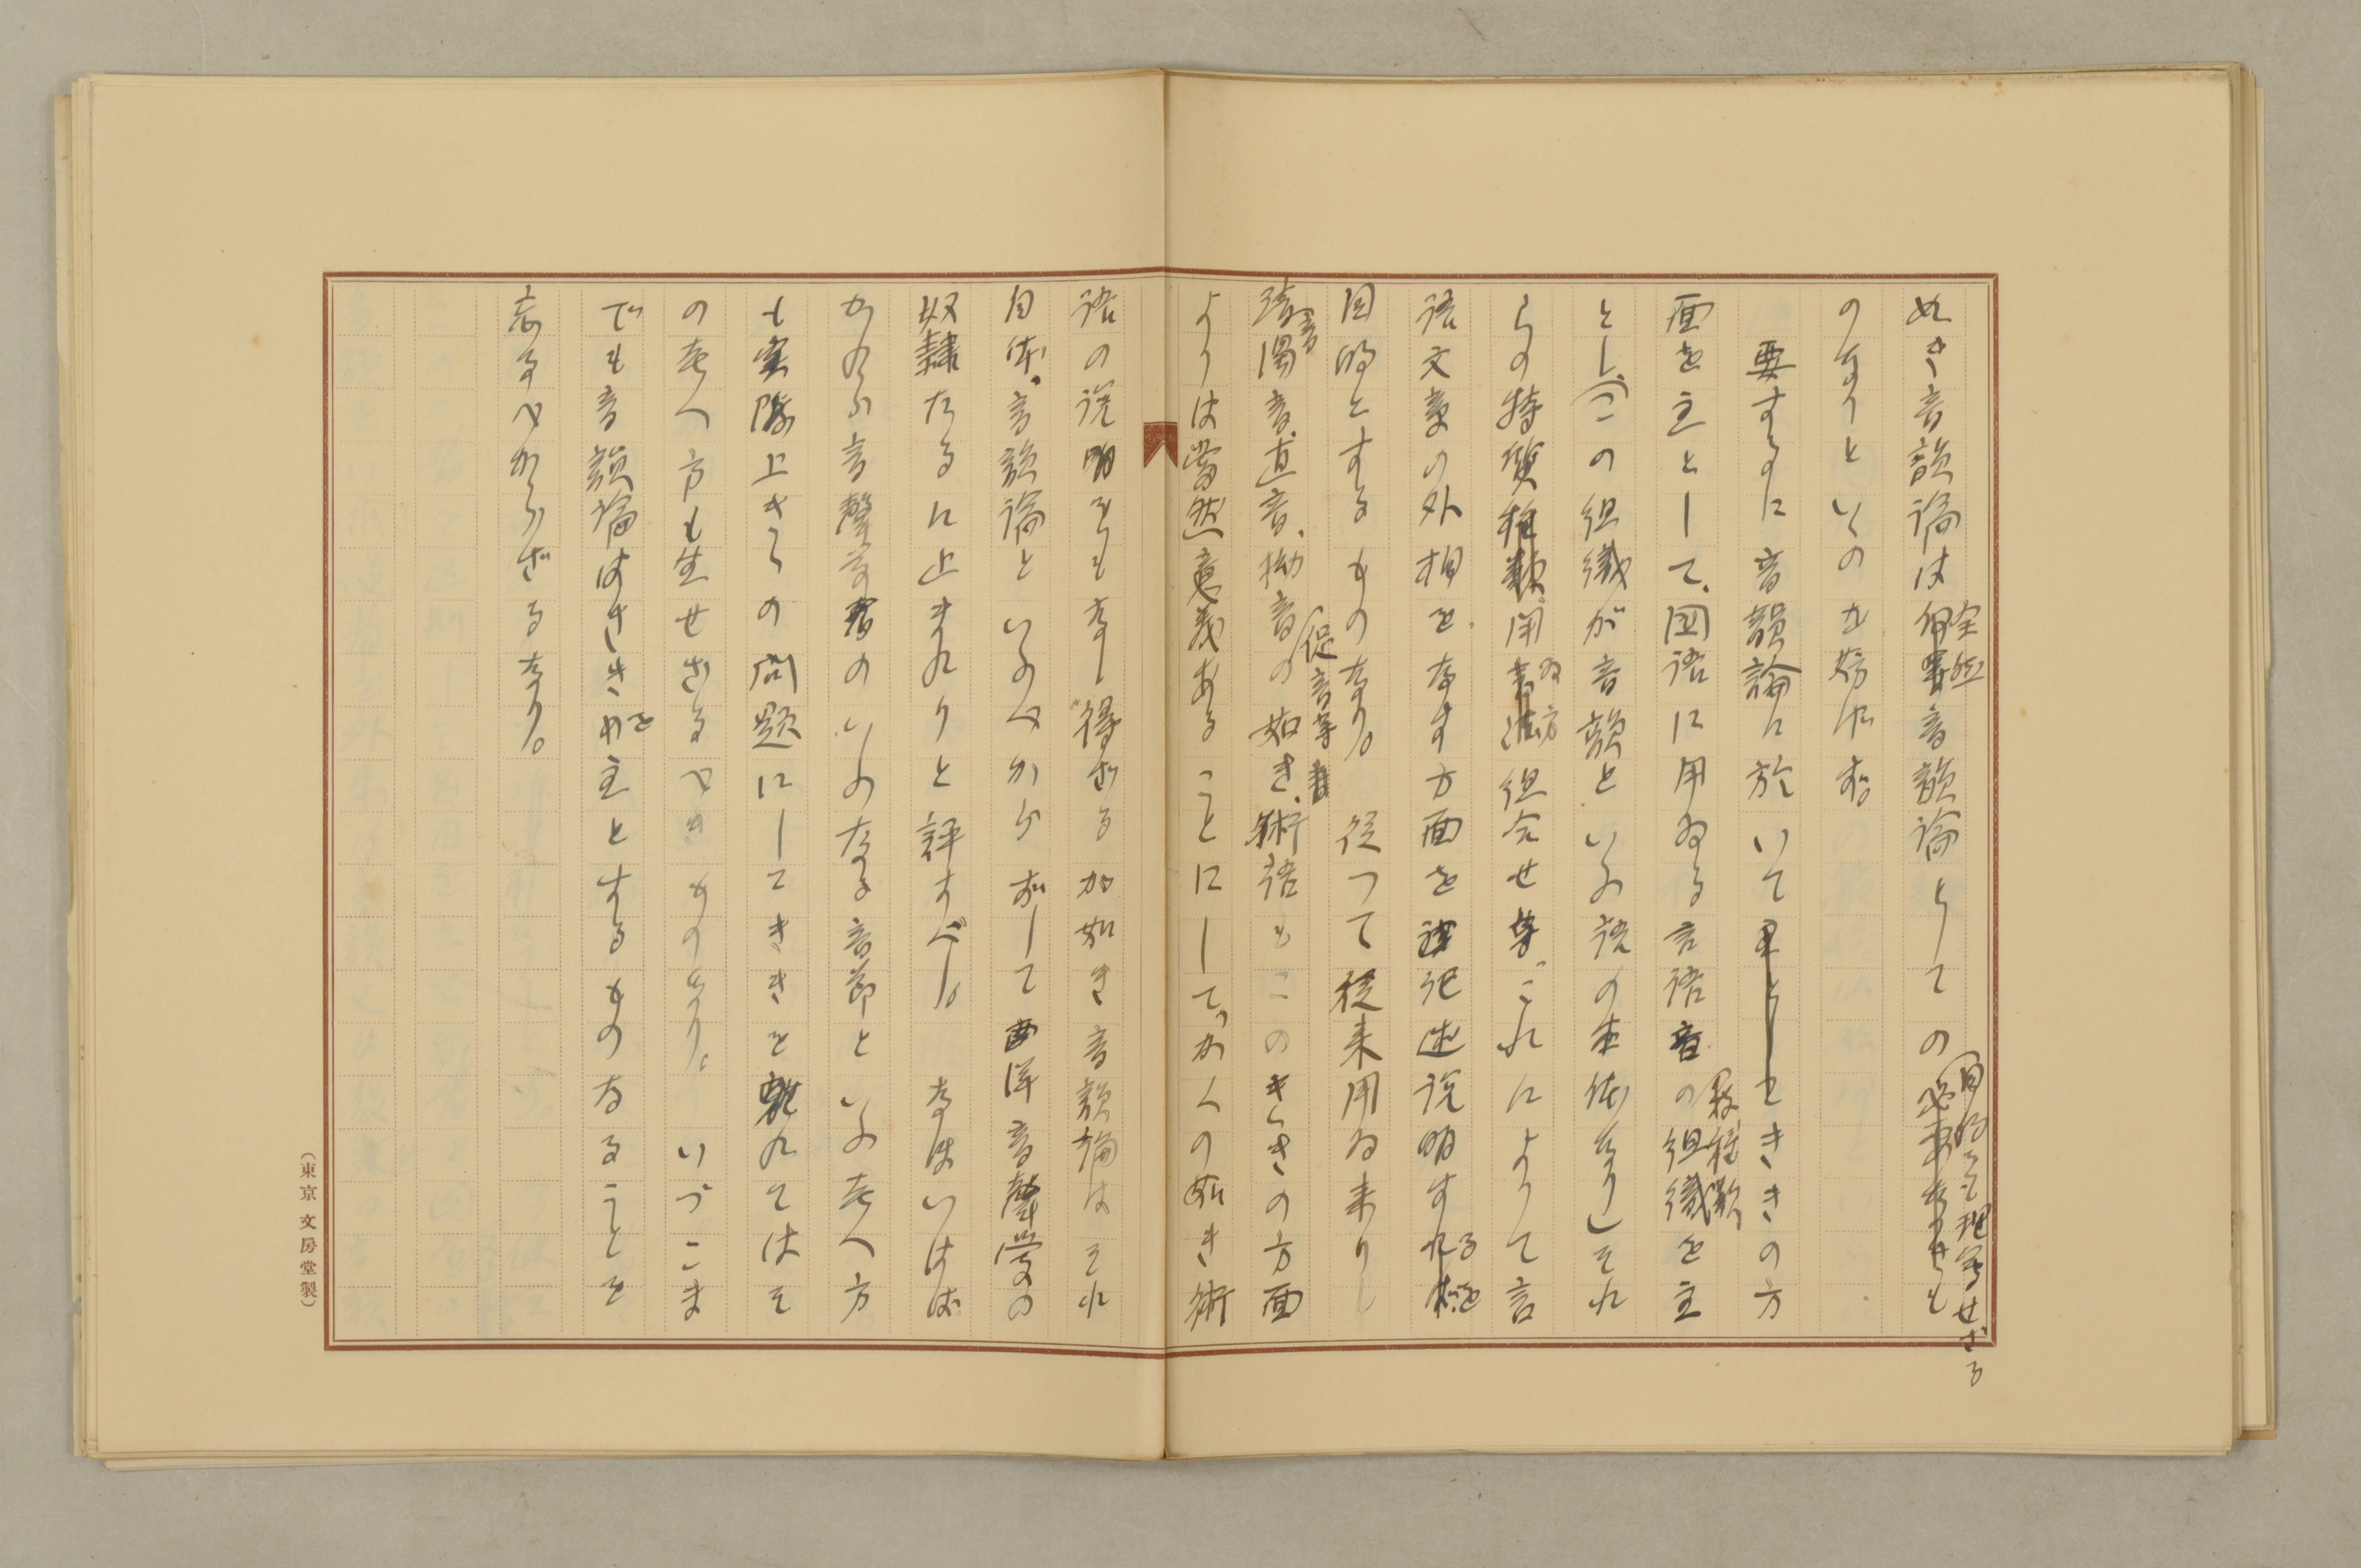 如き音韻論は全然音韻論としての目的を現実せざるも
のなりといふのを妨げず。
要するに音韻論に於いてはきこえの方
面を主として、国語に用ゐる言語音の数種類組織を主
とし、(この組織が音韻といふ語の本体なり)それ
らの特質種類、用ゐ方組合せ等、これによりて言
語文章の外相をなす方面を記述説明するを
目的とするものなり。従つて従来用ゐ来りし
清音濁音、直音、拗音、促音等の如き術語もこのきこえの方面
よりは当然意義あることにして、かくの如き術
語の説明をもなし得ざるが如き音韻論はそれ
自体、音韻論といふべからずして西洋音声学の
奴隷たるに止まれりと評すべし。なほいはば
かのSo音聲のいふなる音節といふ考へ方
も実際上きこえの問題にしてきこえを離れてはそ
の考へ方も生ぜざるべきものなり。いづこま
でも音韻論はきこえを主とするものなることを
忘るべからざるなり。
(東京文房堂製)